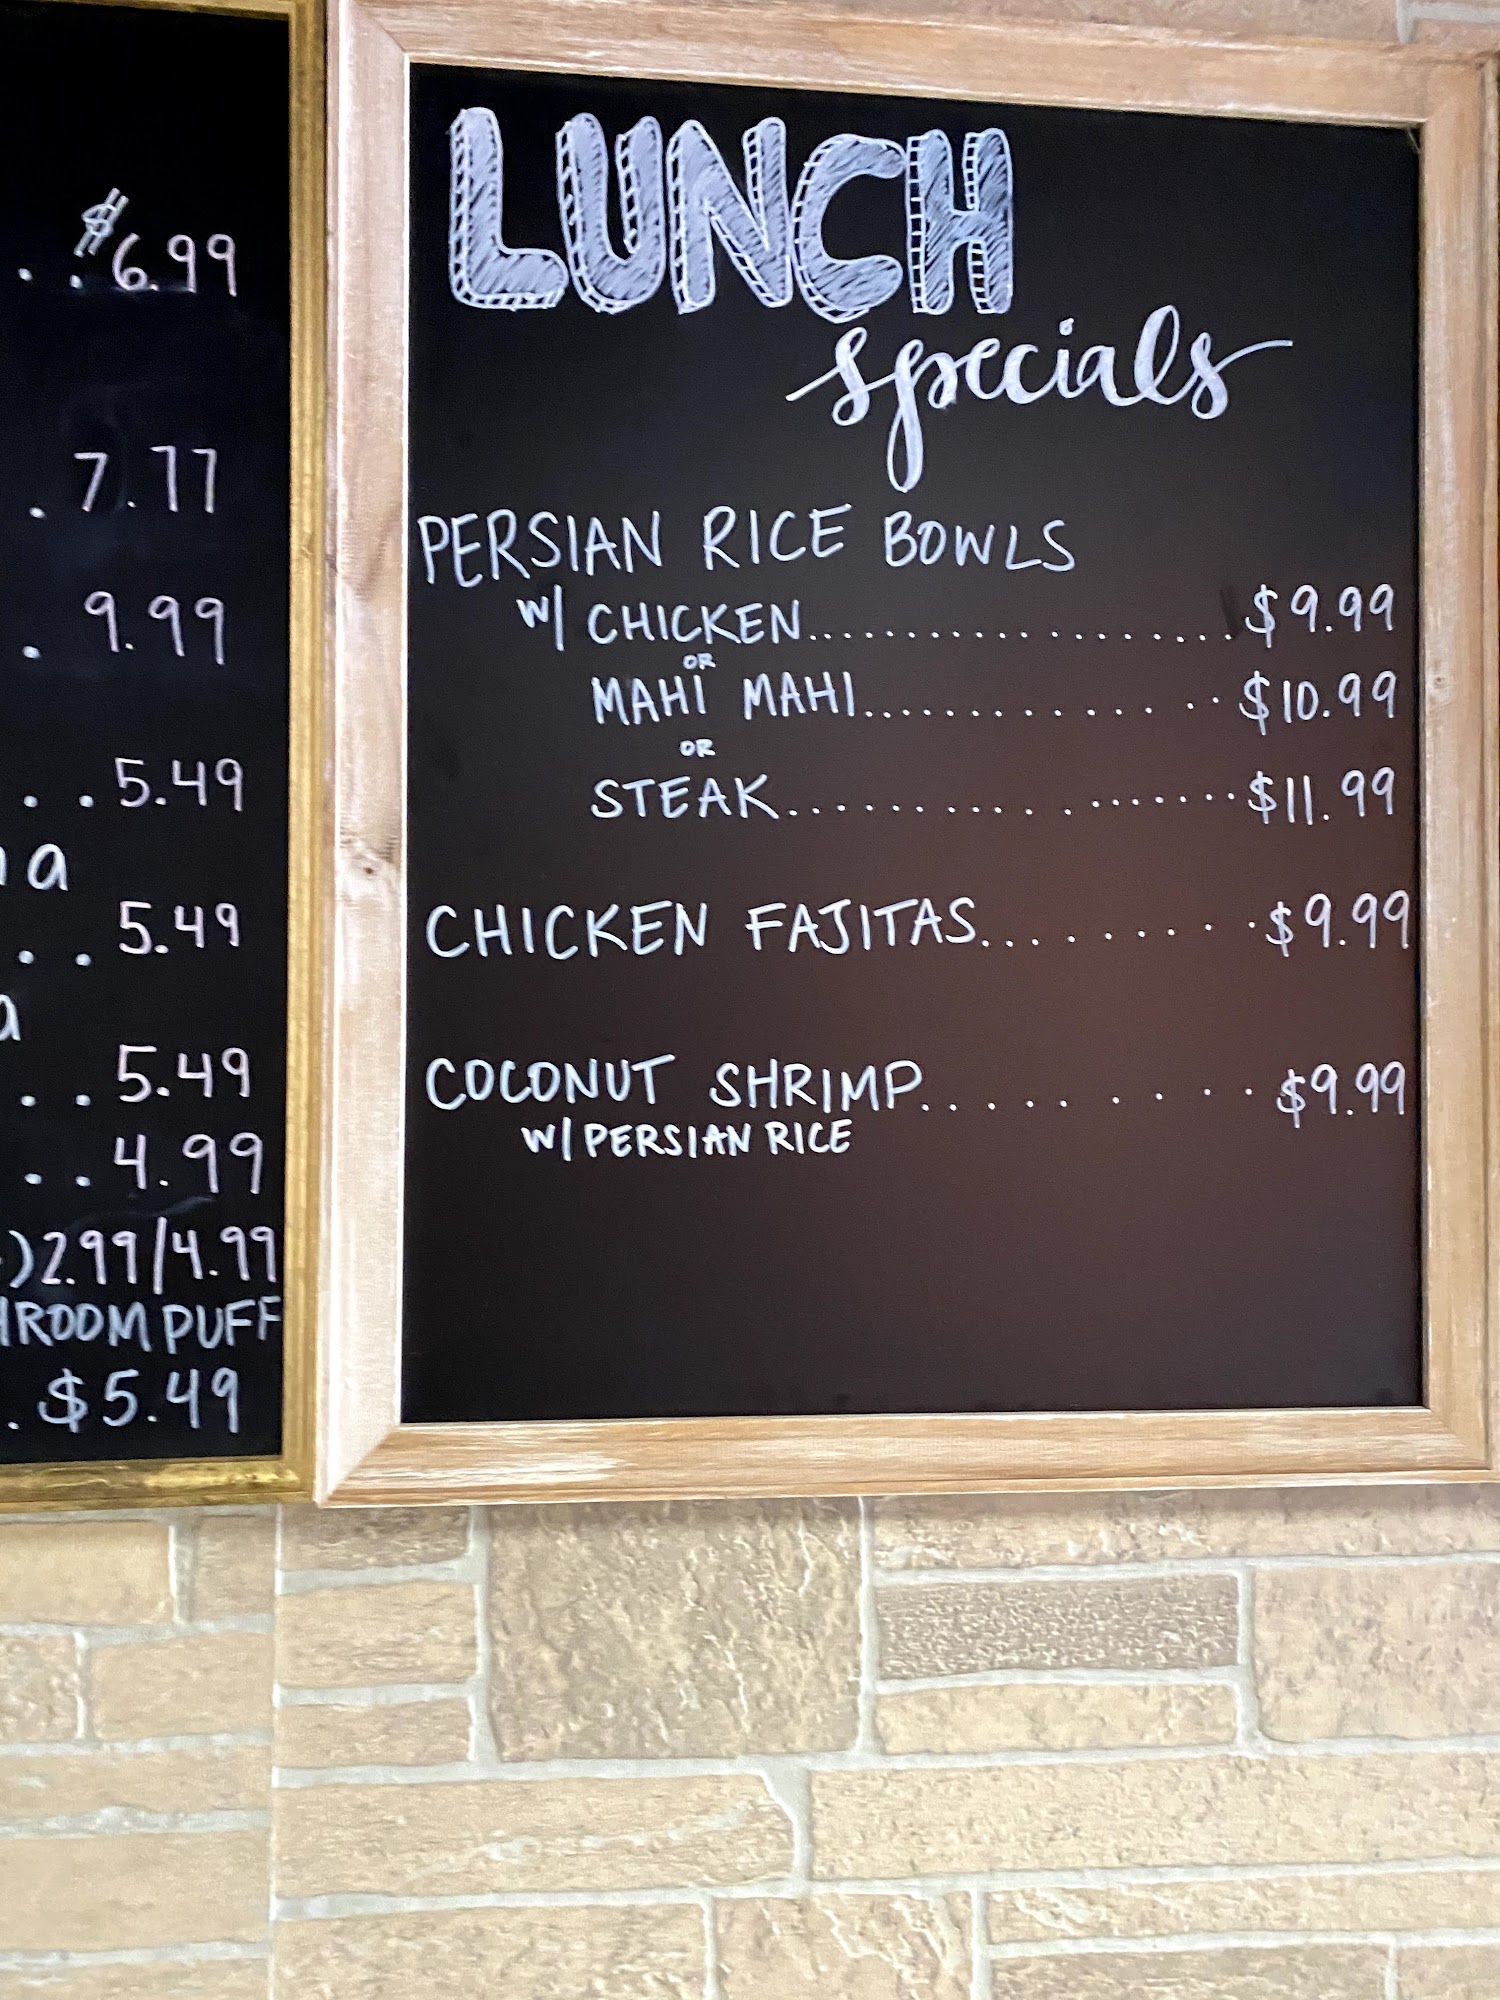 $6.99
. 7.77
. 9.99
. . 5.49
a
. . 5.49
a
. . 5.49
. . 4.99
)2.99/4.99
PUFF
. $5.49
LUNCH
specials
PERSIAN RICE BOWLS
W/ CHICKEN.....................$9.99
OR
MAHI MAHI...............$10.99
OR
STEAK....................$11.99
CHICKEN FAJITAS..........$9.99
COCONUT SHRIMP..........$9.99
W/ PERSIAN RICE